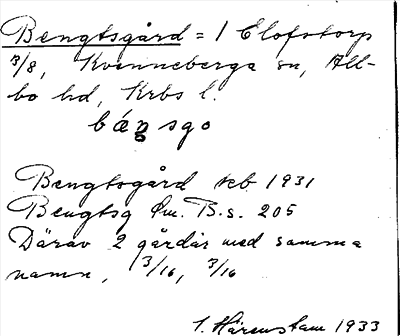 Bengtsgård = 1 Elofstorp
3/8, Kvenneberga sn, All-
bo hd, Krbs l.
bæŋsgo
Bengtsgård skb 1931
Bengtsg Öm. B.s. 205
Därav 2 gårdar med samma
namn, 3/16, 3/16
1933